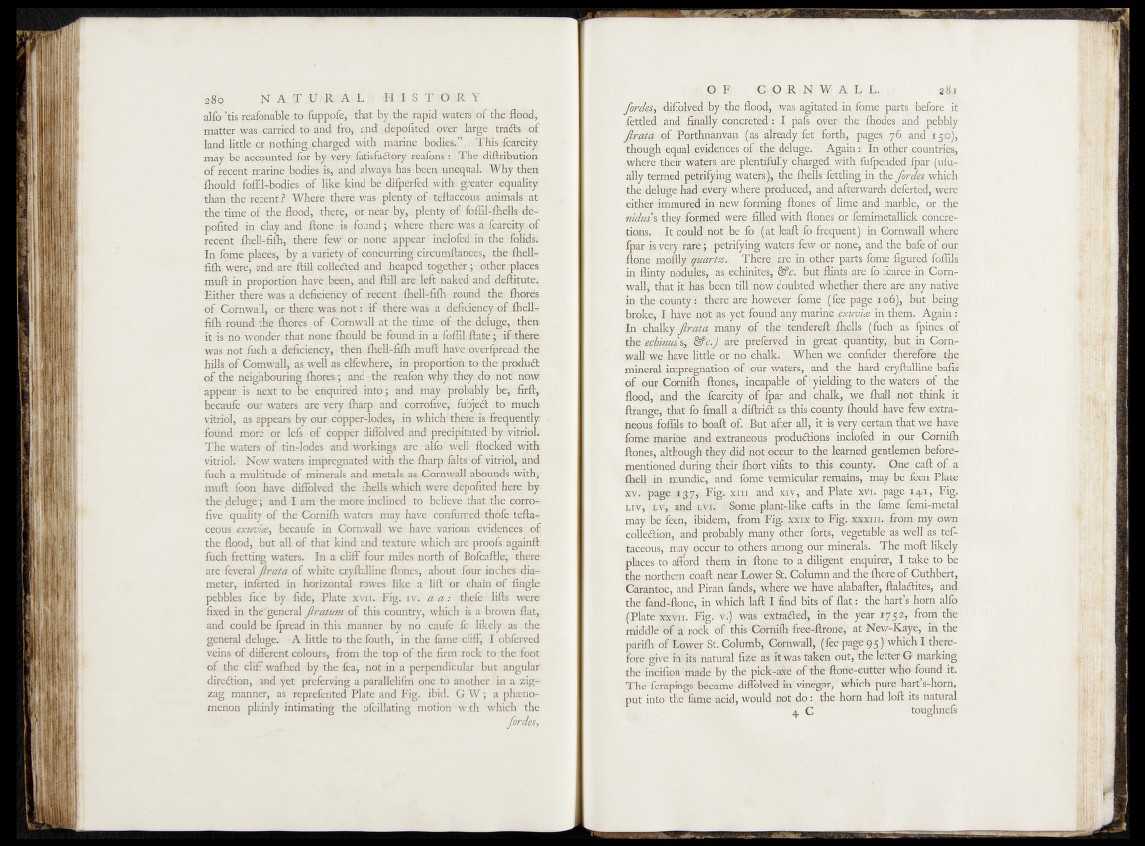 280 NATURAL HISTORY
alſo 'tis reaſonable to ſuppoſe, that by the rapid waters of the flood,
matter was carried to and fro, and depoſited over large tracts of
land little or nothing charged with marine bodies." This ſcarcity
may be accounted for by very ſatisfactory reaſons: The diſtribution
of recent marine bodies is, and always has been unequal. Why then
ſhould foſſil-bodies of like kind be diſperſed with greater equality
than the recent? Where there was plenty of teſtaceous animals at
the time of the flood, there, or near by, plenty of foſſil-ſhells de-
poſited in clay and ſtone is found; where there was a ſcarcity of
recent ſhell-fiſh, there few or none appear incloſed in the ſolids.
In ſome places, by a variety of concurring circumſtances, the ſhell-
fiſh were, and are ſtill collected and heaped together; other places
muſt in proportion have been, and ſtill are left naked and deſtitute.
Either there was a deficiency of recent ſhell-fiſh round the ſhores
of Cornwall, or there was not: if there was a deficiency of ſhell-
fiſh round the ſhores of Cornwall at the time of the deluge, then
it is no wonder that none ſhould be found in a foſſil ſtate; if there
was not ſuch a deficiency, then ſhell-fiſh muſt have overſpread the
hills of Cornwall, as well as elſewhere, in proportion to the product
of the neighbouring ſhores; and the reaſon why they do not now
appear is next to be enquired into; and may probably be, firſt,
becauſe our waters are very ſharp and corroſive, ſubject to much
vitriol, as appears by our copper-lodes, in which there is frequently
found more or leſs of copper diſſolved and precipitated by vitriol.
The waters of tin-lodes and workings are alſo well ſtocked with
vitriol. Now waters impregnated with the ſharp ſalts of vitriol, and
ſuch a multitude of minerals and metals as Cornwall abounds with,
muſt ſoon have diſſolved the ſhells which were depoſited here by
the deluge; and I am the more inclined to believe that the corro-
ſive quality of the Corniſh waters may have conſumed thoſe teſta-
ceous exuviæ, becauſe in Cornwall we have various evidences of
the flood, but all of that kind and texture which are proofs againſt
ſuch fretting waters. In a cliff four miles north of Boſcaſtle, there
are ſeveral ſtrata of white cryſtalline ſtones, about four inches dia-
meter, inſerted in horizontal rowes like a liſt or chain of ſingle
pebbles ſice by ſide, Plate XVII. Fig. IV. a a: theſe liſts were
fixed in the general ſtratum of this country, which is a brown ſlat,
and could be ſpread in this manner by no cauſe ſo likely as the
general deluge. A little to the ſouth, in the ſame cliff, I obſerved
veins of different colours, from the top of the firm rock to the foot
of the cliff waſhed by the ſea, not in a perpendicular but angular
direction, and yet preſerving a paralleliſm one to another in a zig-
zag manner, as repreſented Plate and Fig. ibid. G W; a phæno-
menon plainly intimating the oſcillating motion with which the
ſordes,
OF CORNWALL. 281
ſordes, diſſolved by the flood, was agitated in ſome parts before it
ſettled and finally concreted: I paſs over the ſhodes and pebbly
ſtrata of Porthnanvan (as already ſet forth, pages 76 and 150),
though equal evidences of the deluge. Again: In other countries,
where their waters are plentifully charged with ſuſpended ſpar (uſu-
ally termed petrifying waters), the ſhells ſettling in the ſordes which
the deluge had every where produced, and afterwards deſerted, were
either immured in new forming ſtones of lime and marble, or the
nidus's they formed were filled with ſtones or ſemimetallick concre-
tions. It could not be ſo (at leaſt ſo frequent) in Cornwall where
ſpar is very rare; petrifying waters few or none, and the baſe of our
ſtone moſtly quartz. There are in other parts ſome figured foſſils
in flinty nodules, as echinites, &c. but flints are ſo ſcarce in Corn-
wall, that it has been till now doubted whether there are any native
in the county: there are however ſome (ſee page 106), but being
broke, I have not as yet found any marine exuviæ in them. Again:
In chalky ſtrata many of the tendereſt ſhells (ſuch as ſpines of
the echinus's, &c.) are preſerved in great quantity, but in Corn-
wall we have little or no chalk. When we conſider therefore the
mineral impregnation of our waters, and the hard cryſtalline baſis
of our Corniſh ſtones, incapable of yielding to the waters of the
flood, and the ſcarcity of ſpar and chalk, we ſhall not think it
ſtrange, that ſo ſmall a diſtrict as this county ſhould have few extra-
neous foſſils to boaſt of. But after all, it is very certain that we have
ſome marine and extraneous productions incloſed in our Corniſh
ſtones, although they did not occur to the learned gentlemen before-
mentioned during their ſhort viſits to this county. One caſt of a
ſhell in mundic, and ſome vermicular remains, may be ſeen Plate
XV. page 137, Fig. XIII and XIV, and Plate XVI. page 141, Fig.
LIV, LV, and LVI. Some plant-like caſts in the ſame ſemi-metal
may be ſeen, ibidem, from Fig. XXIX to Fig. XXXIII. from my own
collection, and probably many other ſorts, vegetable as well as teſ-
taceous, may occur to others among our minerals. The moſt likely
places to afford them in ſtone to a diligent enquirer, I take to be
the northern coaſt near Lower St. Column and the ſhore of Cuthbert,
Carantoc, and Piran ſands, where we have alabaſter, ſtalactites, and
the ſand-ſtone, in which laſt I find bits of ſlat: the hart's horn alſo
(Plate XXVII. Fig. V.) was extracted, in the year 1752, from the
middle of a rock of this Corniſh free-ſtrone, at New-Kaye, in the
pariſh of Lower St. Columb, Cornwall, (ſee page 95) which I there-
fore give in its natural ſize as it was taken out, the letter G marking
the inciſion made by the pick-axe of the ſtone-cutter who found it.
The ſcrapings became diſſolved in vinegar, which pure hart's-horn,
put into the ſame acid, would not do: the horn had loſt its natural
4 C toughneſs